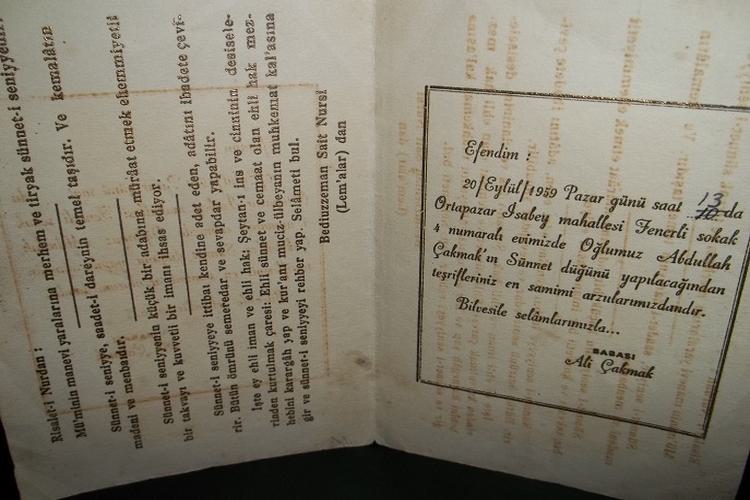 Risale-i Nurdan :
Mü'minin manevi yaralarına merhem ve tiryak sünnet-i seniyyedir.
Sünnet-i seniyye, saadet-i dareynin temel taşıdır. Ve kemalâtın
madeni ve menbaıdır.
Sünnet-i seniyyenin küçük bir adabına müráat etmek ehemmiyetli
bir takvayı ve kuvvetli bir imanı ihsas ediyor.
Sünnet-i seniyyeye ittibaı kendine adet eden, adâtını ibadete çevi-
rir. Bütün ömrünü semeredar ve sevapdar yapabilir.
İşte ey ehli iman ve ehli hak: Şeytan-ı ins ve cinnin desisele-
rinden kurtulmak çaresi: Ehli sünnet ve cemaat olan ehli hak mez-
hebini karargâh yap ve kur'anı muciz-ülbeyanın muhkemat kal'asına
gir ve sünnet-i seniyyeyi rehber yap. Selâmeti bul.
Bediuzzeman Sait Nursi
(Lem'alar) dan
Efendim :
20/Eylül/1959 Pazar günü saat 13 da
Ortapazar İsabey mahallesi Fenerli sokak
4 numaralı evimizde Oğlumuz Abdullah
Çakmak'ın Sünnet düğünü yapılacağından
teşrifleriniz en samimi arzularımızdandır.
Bilvesile selâmlarımızla...
BABASI
Ali Çakmak